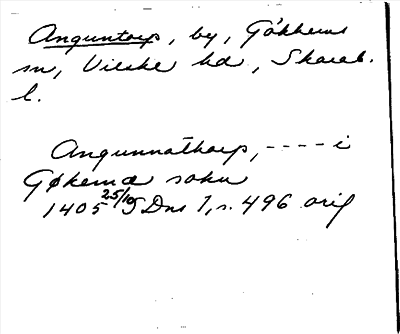 Anguntorp, by, Gökhems
sn, Vilske hd, Skarab.
l.
Angunnathorp, ---- i
Gøkema sokn
1405 25/10 SDns 1, s. 496 orig